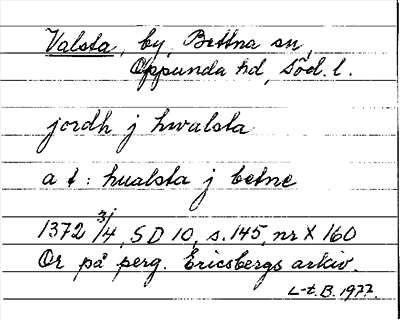 Valsta, by, Bettna sn,
Oppunda hd, Söd. l.
jordh j hwalsta
a t: hualsta j betne
1372 3/4, SD 10, s. 145, nr X 160
Or på perg. Ericsbergs arkiv.
L-t. B. 1977.